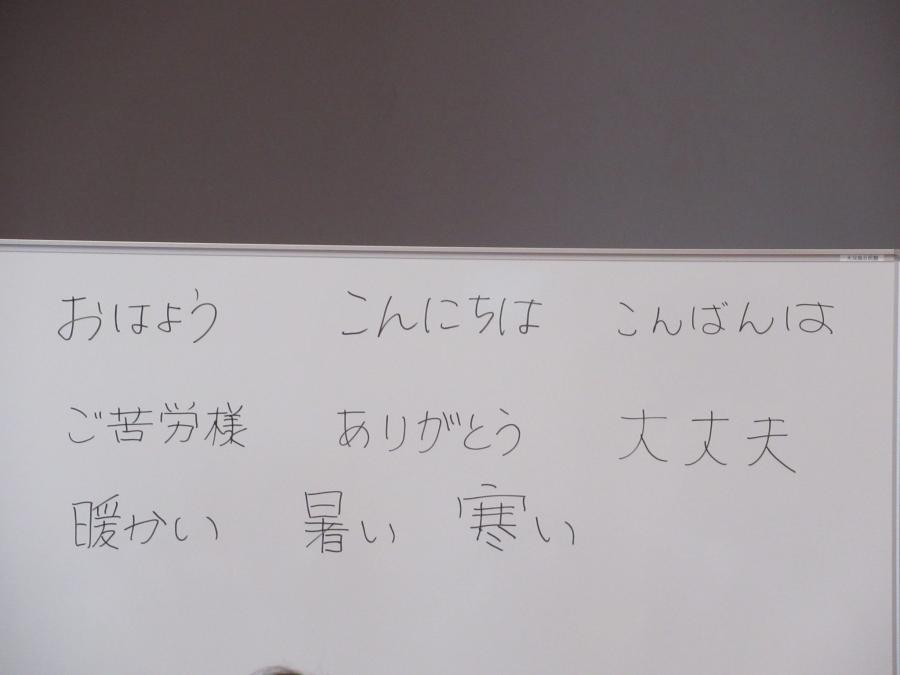 おはよう こんにちは こんばんは
ご苦労様 ありがとう 大丈夫
暖かい 暑い 寒い